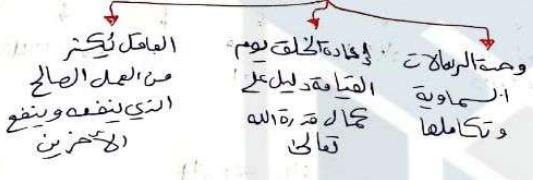 وحدة الرسالات
السماوية
وتكاملها
إعادة الخلق يوم
القيامة دليل على
كمال قدرة الله
تعالى
العاقل يُكثر
من العمل الصالح
الذي ينفعه وينفع
الآخرين